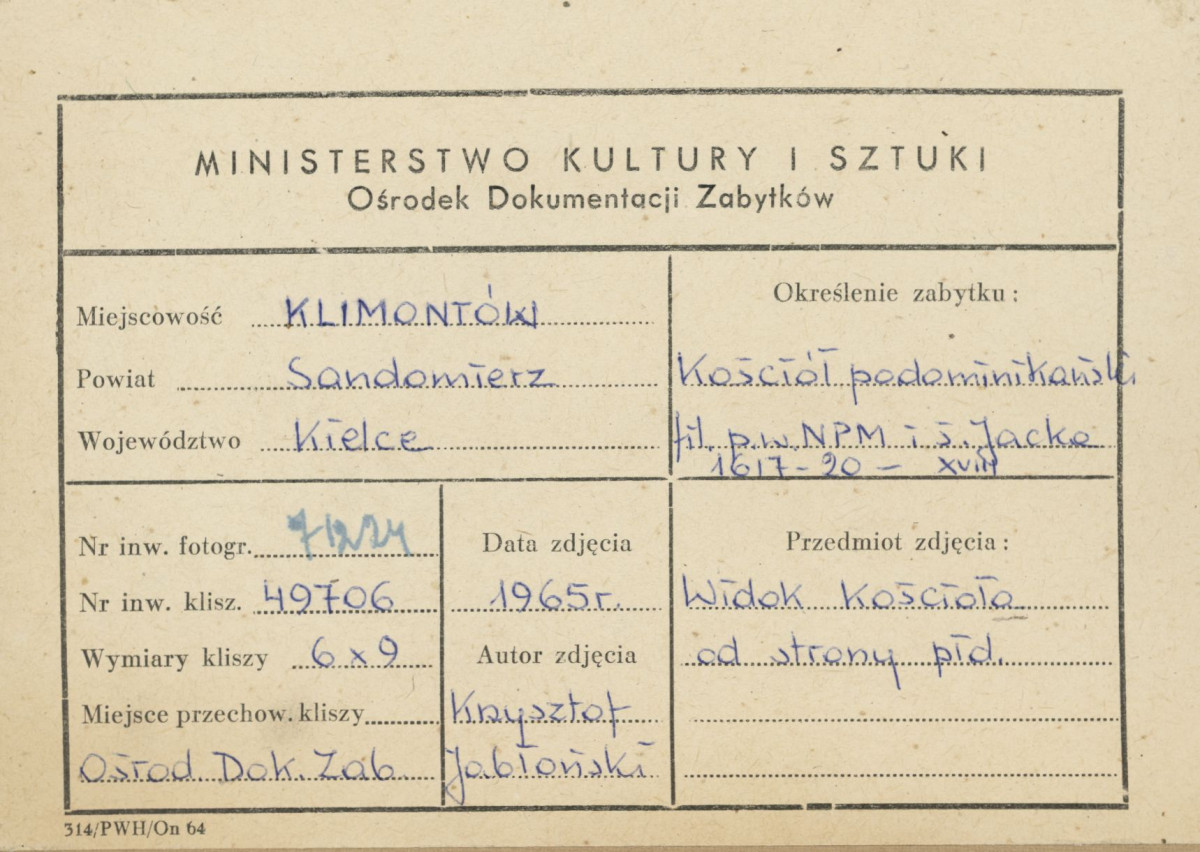 MINISTERSTWO KULTURY I SZTUKI
Ośrodek Dokumentacji Zabytków
Miejscowość KLIMONTÓW
Powiat Sandomierz
Województwo Kielce
Określenie zabytku:
Kościół podominikański
fil. p.w NPM i ś. Jacka
1617-20 - XVIII
Nr inw. fotogr. 71224
Nr inw. klisz. 49706
Wymiary kliszy 6x9
Miejsce przechow. kliszy
Ośrod Dok. Zab
Data zdjęcia
1965r.
Autor zdjęcia
Krzysztof
Jabłoński
Przedmiot zdjęcia:
Widok Kościoła
od strony płd.
314/PWH/On 64